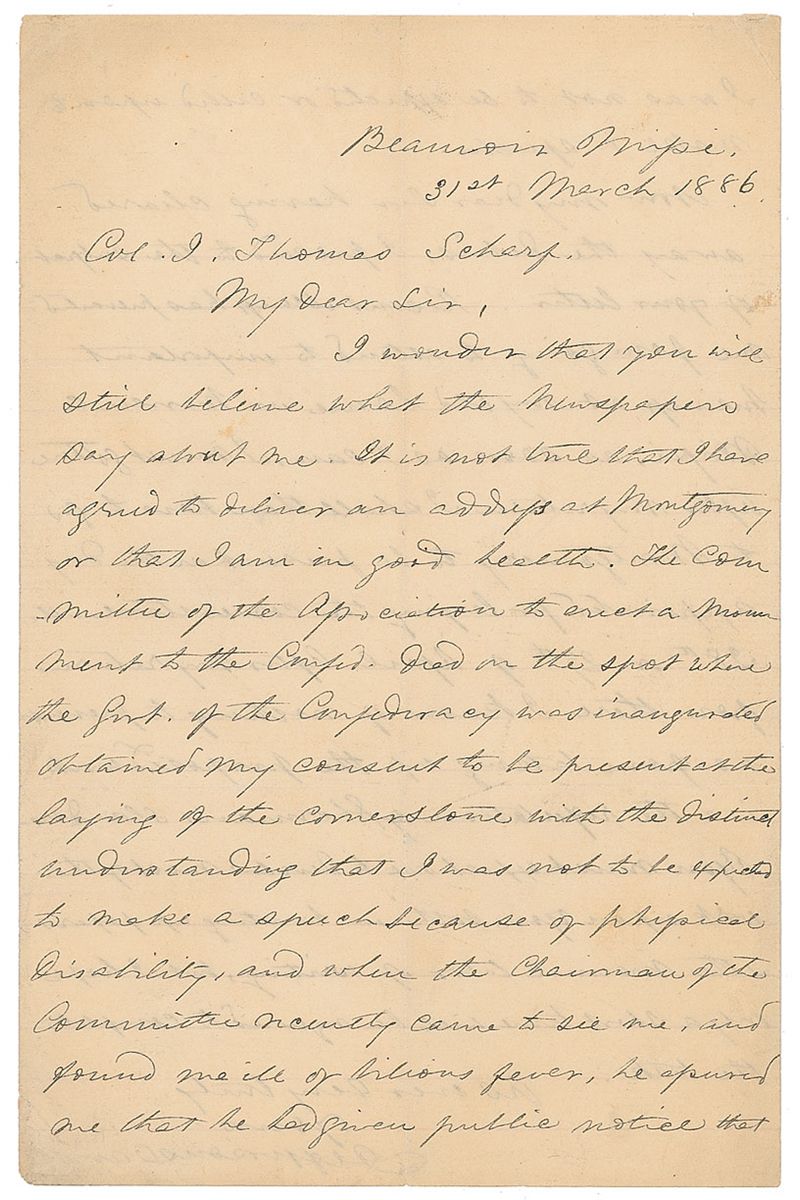 Beauvoir Missi.
31st March 1886.
Col. J. Thomas Scharf.
My Dear Sir,
I wonder that you will
still believe what the Newspapers
say about me. It is not true that I have
agreed to deliver an address at Montgomery
or that I am in good health. The Com
-mittee of the Association to erect a Monu-
ment to the Confed. Dead on the spot where
the Govt. of the Confederacy was inaugurated
obtained my consent to be present at the
laying of the cornerstone with the distinct
understanding that I was not to be expected
to make a speech because of physical
disability, and when the Chairman of the
Committee recently came to see me, and
found me ill of bilious fever, he assured
me that he had given public notice that